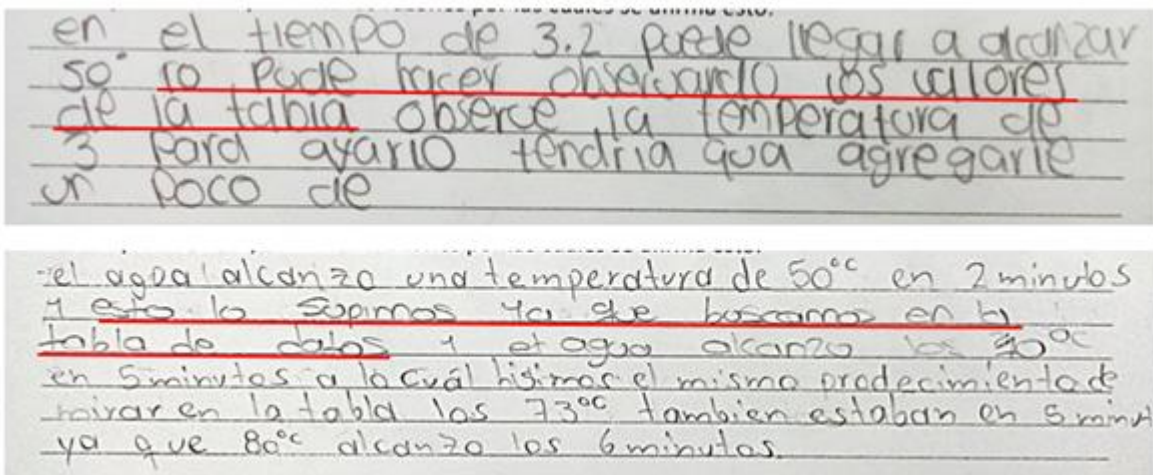 en el tiempo de 3.2 puede llegar a alcanzar
50° lo pude hacer observando los valores
de la tabla observe la temperatura de
3 para tendria qua agregarle
un poco de
el agua alcanzo una temperatura de 50°c en 2 minutos
y esto lo supimos ya que buscamos en la
tabla de datos y el agua alcanzo los 70°c
en 5 minutos a lo cuál hisimos el mismo prodecimiento de
mirar en la tabla los 73°c tambien estaban en 5 minut
ya que 80°c alcanzo los 6 minutos